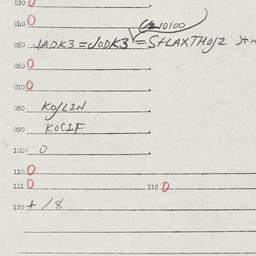 030 0
040 0 10100
050 √ADK3 = √ODK3 = S+LAXTHO/2
060 0
070 0
080 KO/L2N
090 KOC1F
100 0
110 0
111 0 112 0
120 + / 8